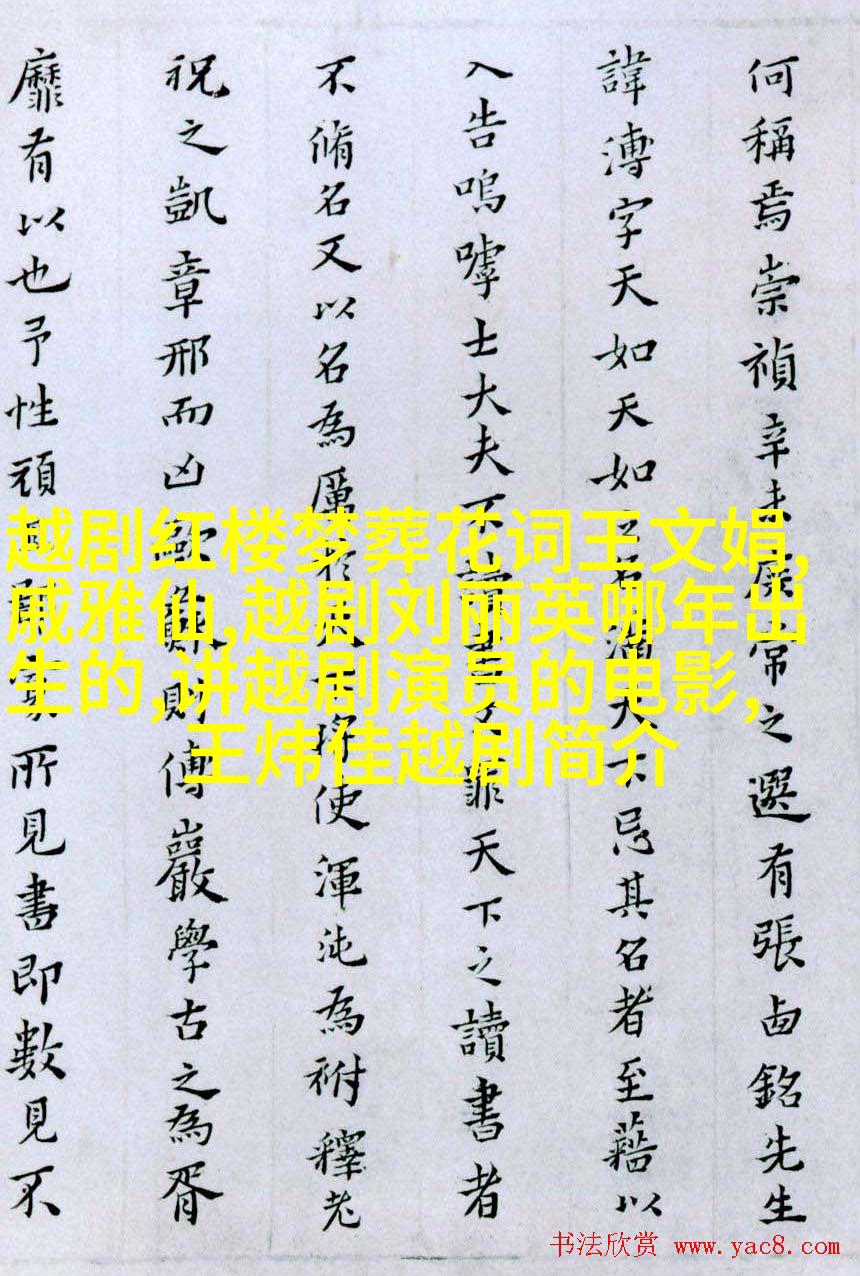 何稱焉崇禎辛未
常之選有張卤銘先生
諱溥字天如天如
忌其名者至藉以
入告嗚嘑士大夫不讀
罪天下之讀書者
不脩名又以名為厲
將使渾沌為祔釋老
祝之凱章邢而凶
則傅巖學古之為胥
靡有以也予性頑
所見書即數見不
越剧红楼梦葬花词王文娟,
戚雅仙,越剧刘丽英哪年出
生的,讲越剧演员的电影,
王炜佳越剧简介
书法欣赏 www.yac8.com